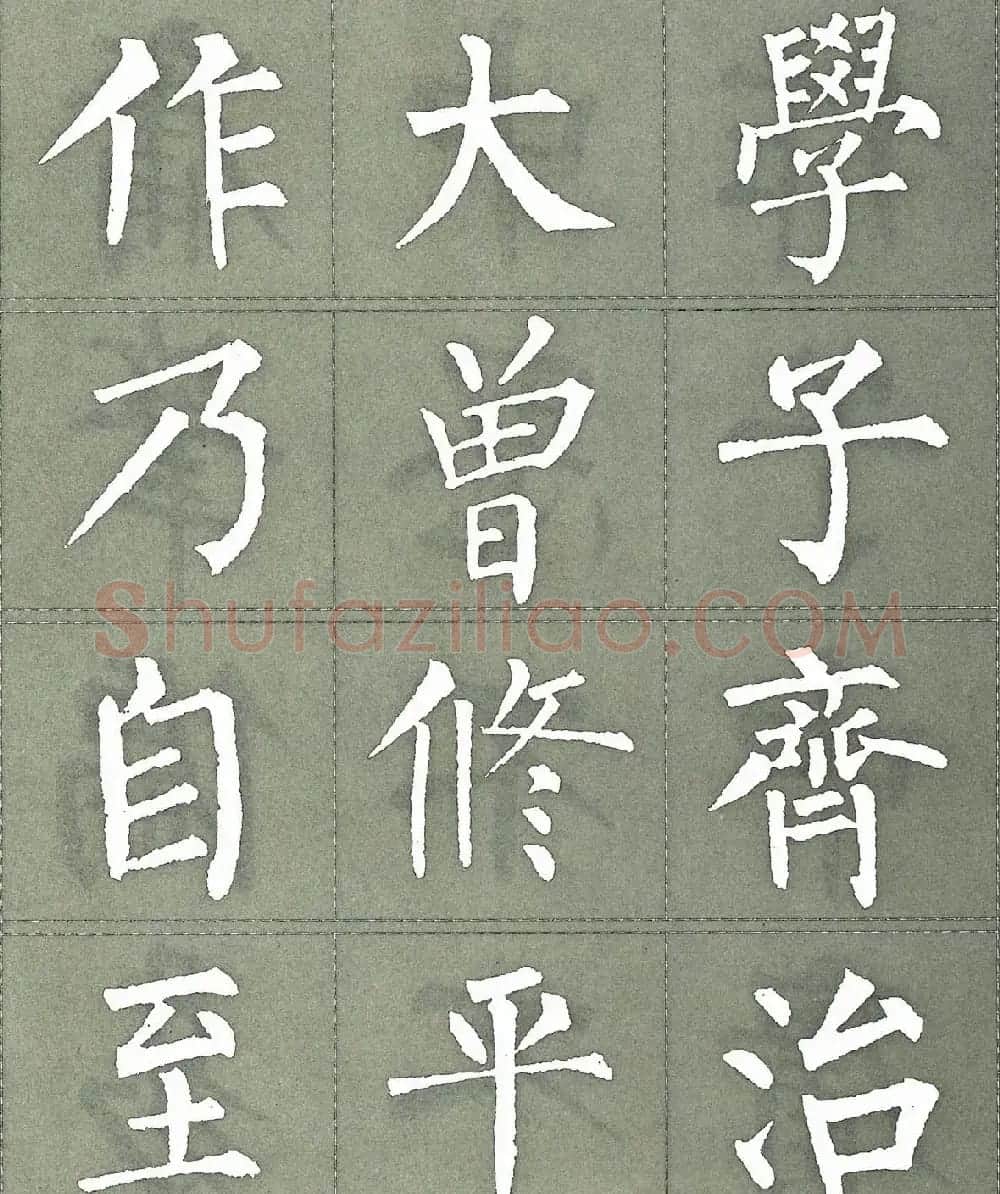 作大學
乃曾子
自修齊
至平治
Shufaziliao.COM